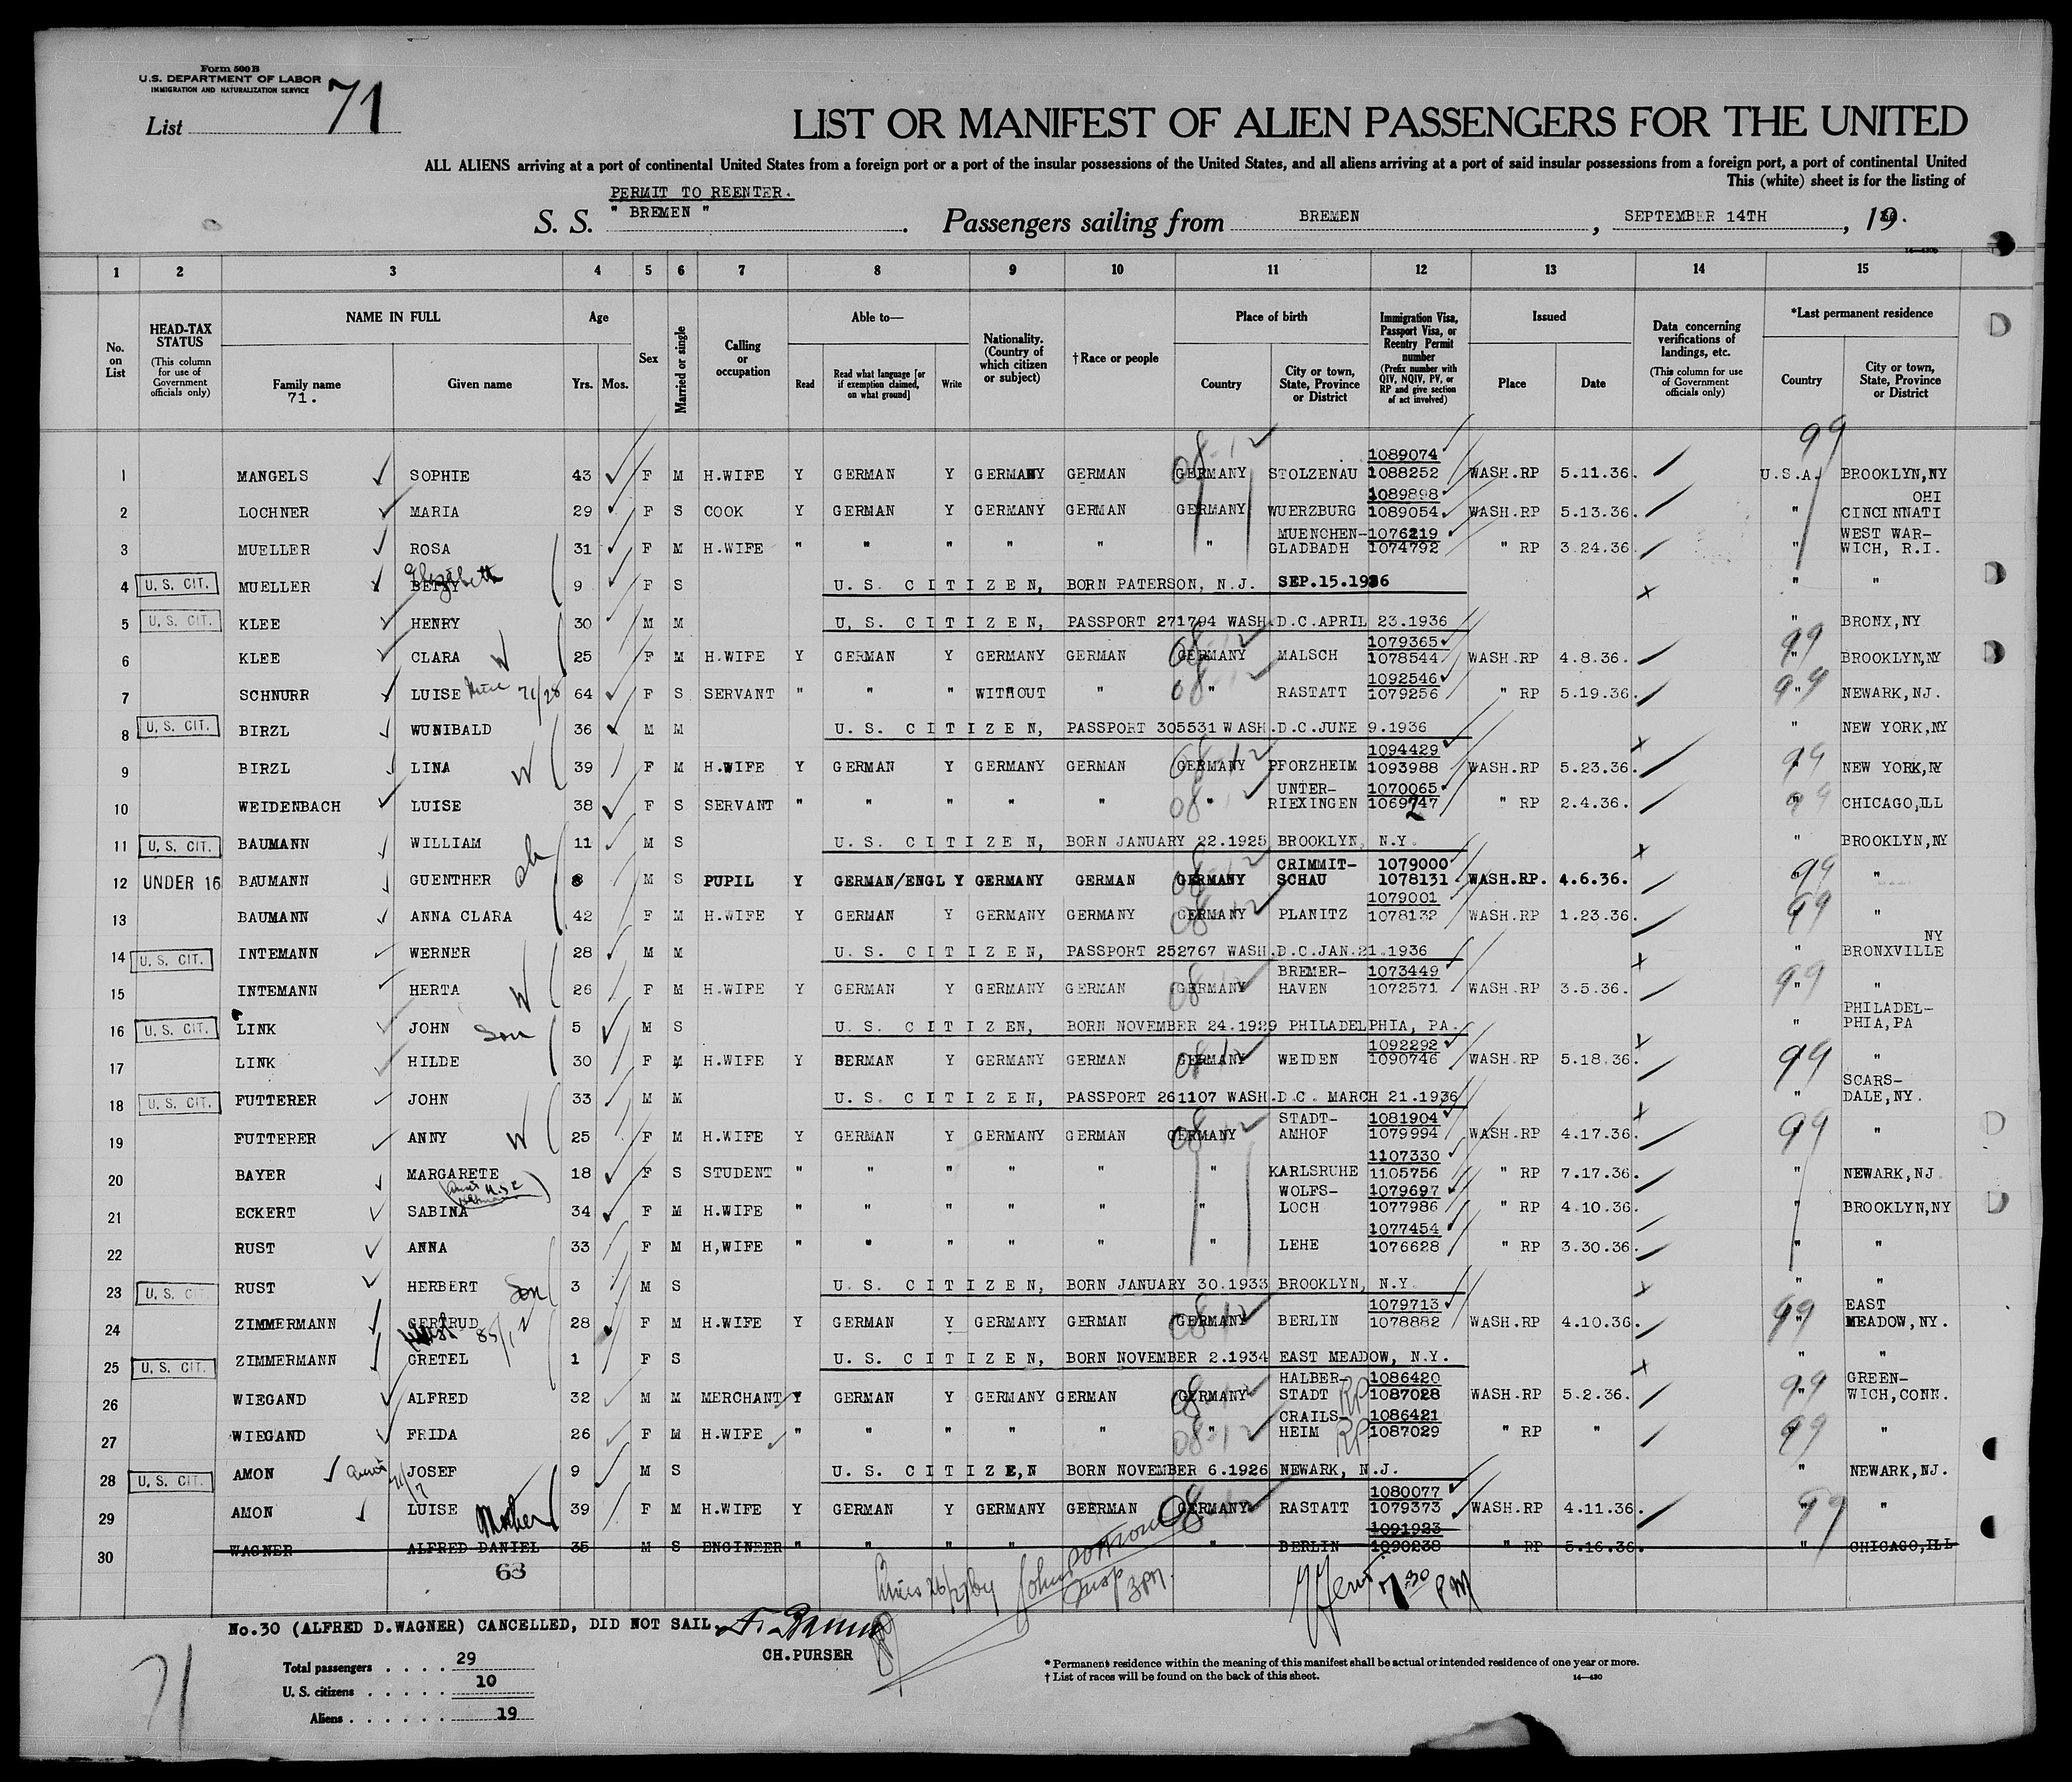 Form 500 B
U.S. DEPARTMENT OF LABOR
IMMIGRATION AND NATURALIZATION SERVICE
List 71
LIST OR MANIFEST OF ALIEN PASSENGERS FOR THE UNITED
ALL ALIENS arriving at a port of continental United States from a foreign port or a port of the insular possessions of the United States, and all aliens arriving at a port of said insular possessions from a foreign port, a port of continental United
This (white) sheet is for the listing of
PERMIT TO REENTER.
S. S. " BREMEN " . Passengers sailing from BREMEN , SEPTEMBER 14TH , 19
1 2 3 4 5 6 7 8 9 10 11 12 13 14 15
No. on List
HEAD-TAX STATUS (This column for use of Government officials only)
NAME IN FULL
Family name 71.
Given name
Age
Yrs. Mos.
Sex
Married or single
Calling or occupation
Able to—
Read
Read what language [or if exemption claimed, on what ground]
Write
Nationality. (Country of which citizen or subject)
† Race or people
Place of birth
Country
City or town, State, Province or District
Immigration Visa, Passport Visa, or Reentry Permit number (Prefix number with QIV, NQIV, PV, or RP and give section of act involved)
Issued
Place
Date
Data concerning verifications of landings, etc. (This column for use of Government officials only)
*Last permanent residence
Country
City or town, State, Province or District
1 MANGELS SOPHIE 43 F M H.WIFE Y GERMAN Y GERMANY GERMAN 08-12 GERMANY STOLZENAU 1089074 1088252 WASH.RP 5.11.36. 99 U.S.A. BROOKLYN,NY
2 LOCHNER MARIA 29 F S COOK Y GERMAN Y GERMANY GERMAN GERMANY WUERZBURG 1089898 1089054 WASH.RP 5.13.36. " OHI CINCINNATI
3 MUELLER ROSA 31 F M H.WIFE " " " " " " MUENCHEN-GLADBADH 1076219 1074792 " RP 3.24.36. " WEST WAR-WICH, R.I.
4 U.S. CIT. MUELLER BETSY Elizabeth 9 F S U.S. CITIZEN, BORN PATERSON, N.J. SEP.15.1936 " "
5 U.S. CIT. KLEE HENRY 30 M M U.S. CITIZEN, PASSPORT 271794 WASH.D.C.APRIL 23.1936 " BRONX,NY
6 KLEE CLARA W 25 F M H.WIFE Y GERMAN Y GERMANY GERMAN 08-12 GERMANY MALSCH 1079365 1078544 WASH.RP 4.8.36. 99 " BROOKLYN,NY
7 SCHNURR LUISE 71/28 64 F S SERVANT " " " WITHOUT " 08-12 " RASTATT 1092546 1079256 " RP 5.19.36. 99 " NEWARK,NJ.
8 U.S. CIT. BIRZL WUNIBALD 36 M M U.S. CITIZEN, PASSPORT 305531 WASH.D.C.JUNE 9.1936 " NEW YORK,NY
9 BIRZL LINA W 39 F M H.WIFE Y GERMAN Y GERMANY GERMAN 08-12 GERMANY PFORZHEIM 1094429 1093988 WASH.RP 5.23.36. 99 NEW YORK,NY
10 WEIDENBACH LUISE 38 F S SERVANT " " " " " 08-12 " UNTER-RIEXINGEN 1070065 1069247 " RP 2.4.36. 99 " CHICAGO,ILL
11 U.S. CIT. BAUMANN WILLIAM 11 M S U.S. CITIZEN, BORN JANUARY 22.1925 BROOKLYN, N.Y. " BROOKLYN,NY
12 UNDER 16 BAUMANN GUENTHER ch 8 M S PUPIL Y GERMAN/ENGL Y GERMANY GERMAN 08-12 GERMANY CRIMMIT-SCHAU 1079000 1078131 WASH.RP. 4.6.36. 99 " "
13 BAUMANN ANNA CLARA 42 F M H.WIFE Y GERMAN Y GERMANY GERMANY 08-12 GERMANY PLANITZ 1079001 1078132 WASH.RP 1.23.36. 99 " "
14 U.S. CIT. INTEMANN WERNER 28 M M U.S. CITIZEN, PASSPORT 252767 WASH.D.C.JAN.21.1936 " NY BRONXVILLE
15 INTEMANN HERTA W 26 F M H.WIFE Y GERMAN Y GERMANY GERMAN 08-12 GERMANY BREMER-HAVEN 1073449 1072571 WASH.RP 3.5.36. 99 " "
16 U.S. CIT. LINK JOHN Son 5 M S U.S. CITIZEN, BORN NOVEMBER 24.1929 PHILADELPHIA, PA. " PHILADEL-PHIA,PA
17 LINK HILDE 30 F M H.WIFE Y BERMAN Y GERMANY GERMAN 08-12 GERMANY WEIDEN 1092292 1090746 WASH.RP 5.18.36. 99 "
18 U.S. CIT. FUTTERER JOHN 33 M M U.S. CITIZEN, PASSPORT 261107 WASH.D.C. MARCH 21.1936 " SCARS-DALE,NY.
19 FUTTERER ANNY W 25 F M H.WIFE Y GERMAN Y GERMANY GERMAN 08-12 GERMANY STADT-AMHOF 1081904 1079994 WASH.RP 4.17.36. 99 "
20 BAYER MARGARETE 18 F S STUDENT " " " " " " KARLSRUHE 1107330 1105756 " RP 7.17.36. " NEWARK,NJ.
21 ECKERT SABINA 34 F M H.WIFE " " " " " " WOLFS-LOCH 1079697 1077986 " RP 4.10.36. " BROOKLYN,NY
22 RUST ANNA 33 F M H,WIFE " " " " " " LEHE 1077454 1076628 " RP 3.30.36. " "
23 U.S. CIT. RUST HERBERT Son 3 M S U.S. CITIZEN, BORN JANUARY 30.1933 BROOKLYN, N.Y. " "
24 ZIMMERMANN GERTRUD 28 F M H.WIFE Y GERMAN Y GERMANY GERMAN 08-12 GERMANY BERLIN 1079713 1078882 WASH.RP 4.10.36. 99 " EAST MEADOW,NY.
25 U.S. CIT. ZIMMERMANN GRETEL 1 F S U.S. CITIZEN, BORN NOVEMBER 2.1934 EAST MEADOW, N.Y. " "
26 WIEGAND ALFRED 32 M M MERCHANT Y GERMAN Y GERMANY GERMAN 08-12 GERMANY HALBER-STADT RP 1086420 1087028 WASH.RP 5.2.36. 99 " GREEN-WICH,CONN.
27 WIEGAND FRIDA 26 F M H.WIFE " " " " " 08-12 " CRAILS-HEIM RP 1086421 1087029 " RP " 99 "
28 U.S. CIT. AMON JOSEF 71/7 9 M S U.S. CITIZE,N BORN NOVEMBER 6.1926 NEWARK, N.J. " NEWARK,NJ.
29 AMON LUISE Mother 39 F M H.WIFE Y GERMAN Y GERMANY GEERMAN 08-12 GERMANY RASTATT 1080077 1079373 WASH.RP 4.11.36. 99 " "
30 WAGNER ALFRED DANIEL 35 M S ENGINEER " " " " " " BERLIN 1091923 1090238 " RP 5.16.36. " CHICAGO,ILL
63
3PM.
7.30 PM
No.30 (ALFRED D.WAGNER) CANCELLED, DID NOT SAIL.
CH.PURSER
71
Total passengers . . . . 29
U. S. citizens . . . . . 10
Aliens . . . . . . 19
* Permanent residence within the meaning of this manifest shall be actual or intended residence of one year or more.
† List of races will be found on the back of this sheet.
14—430